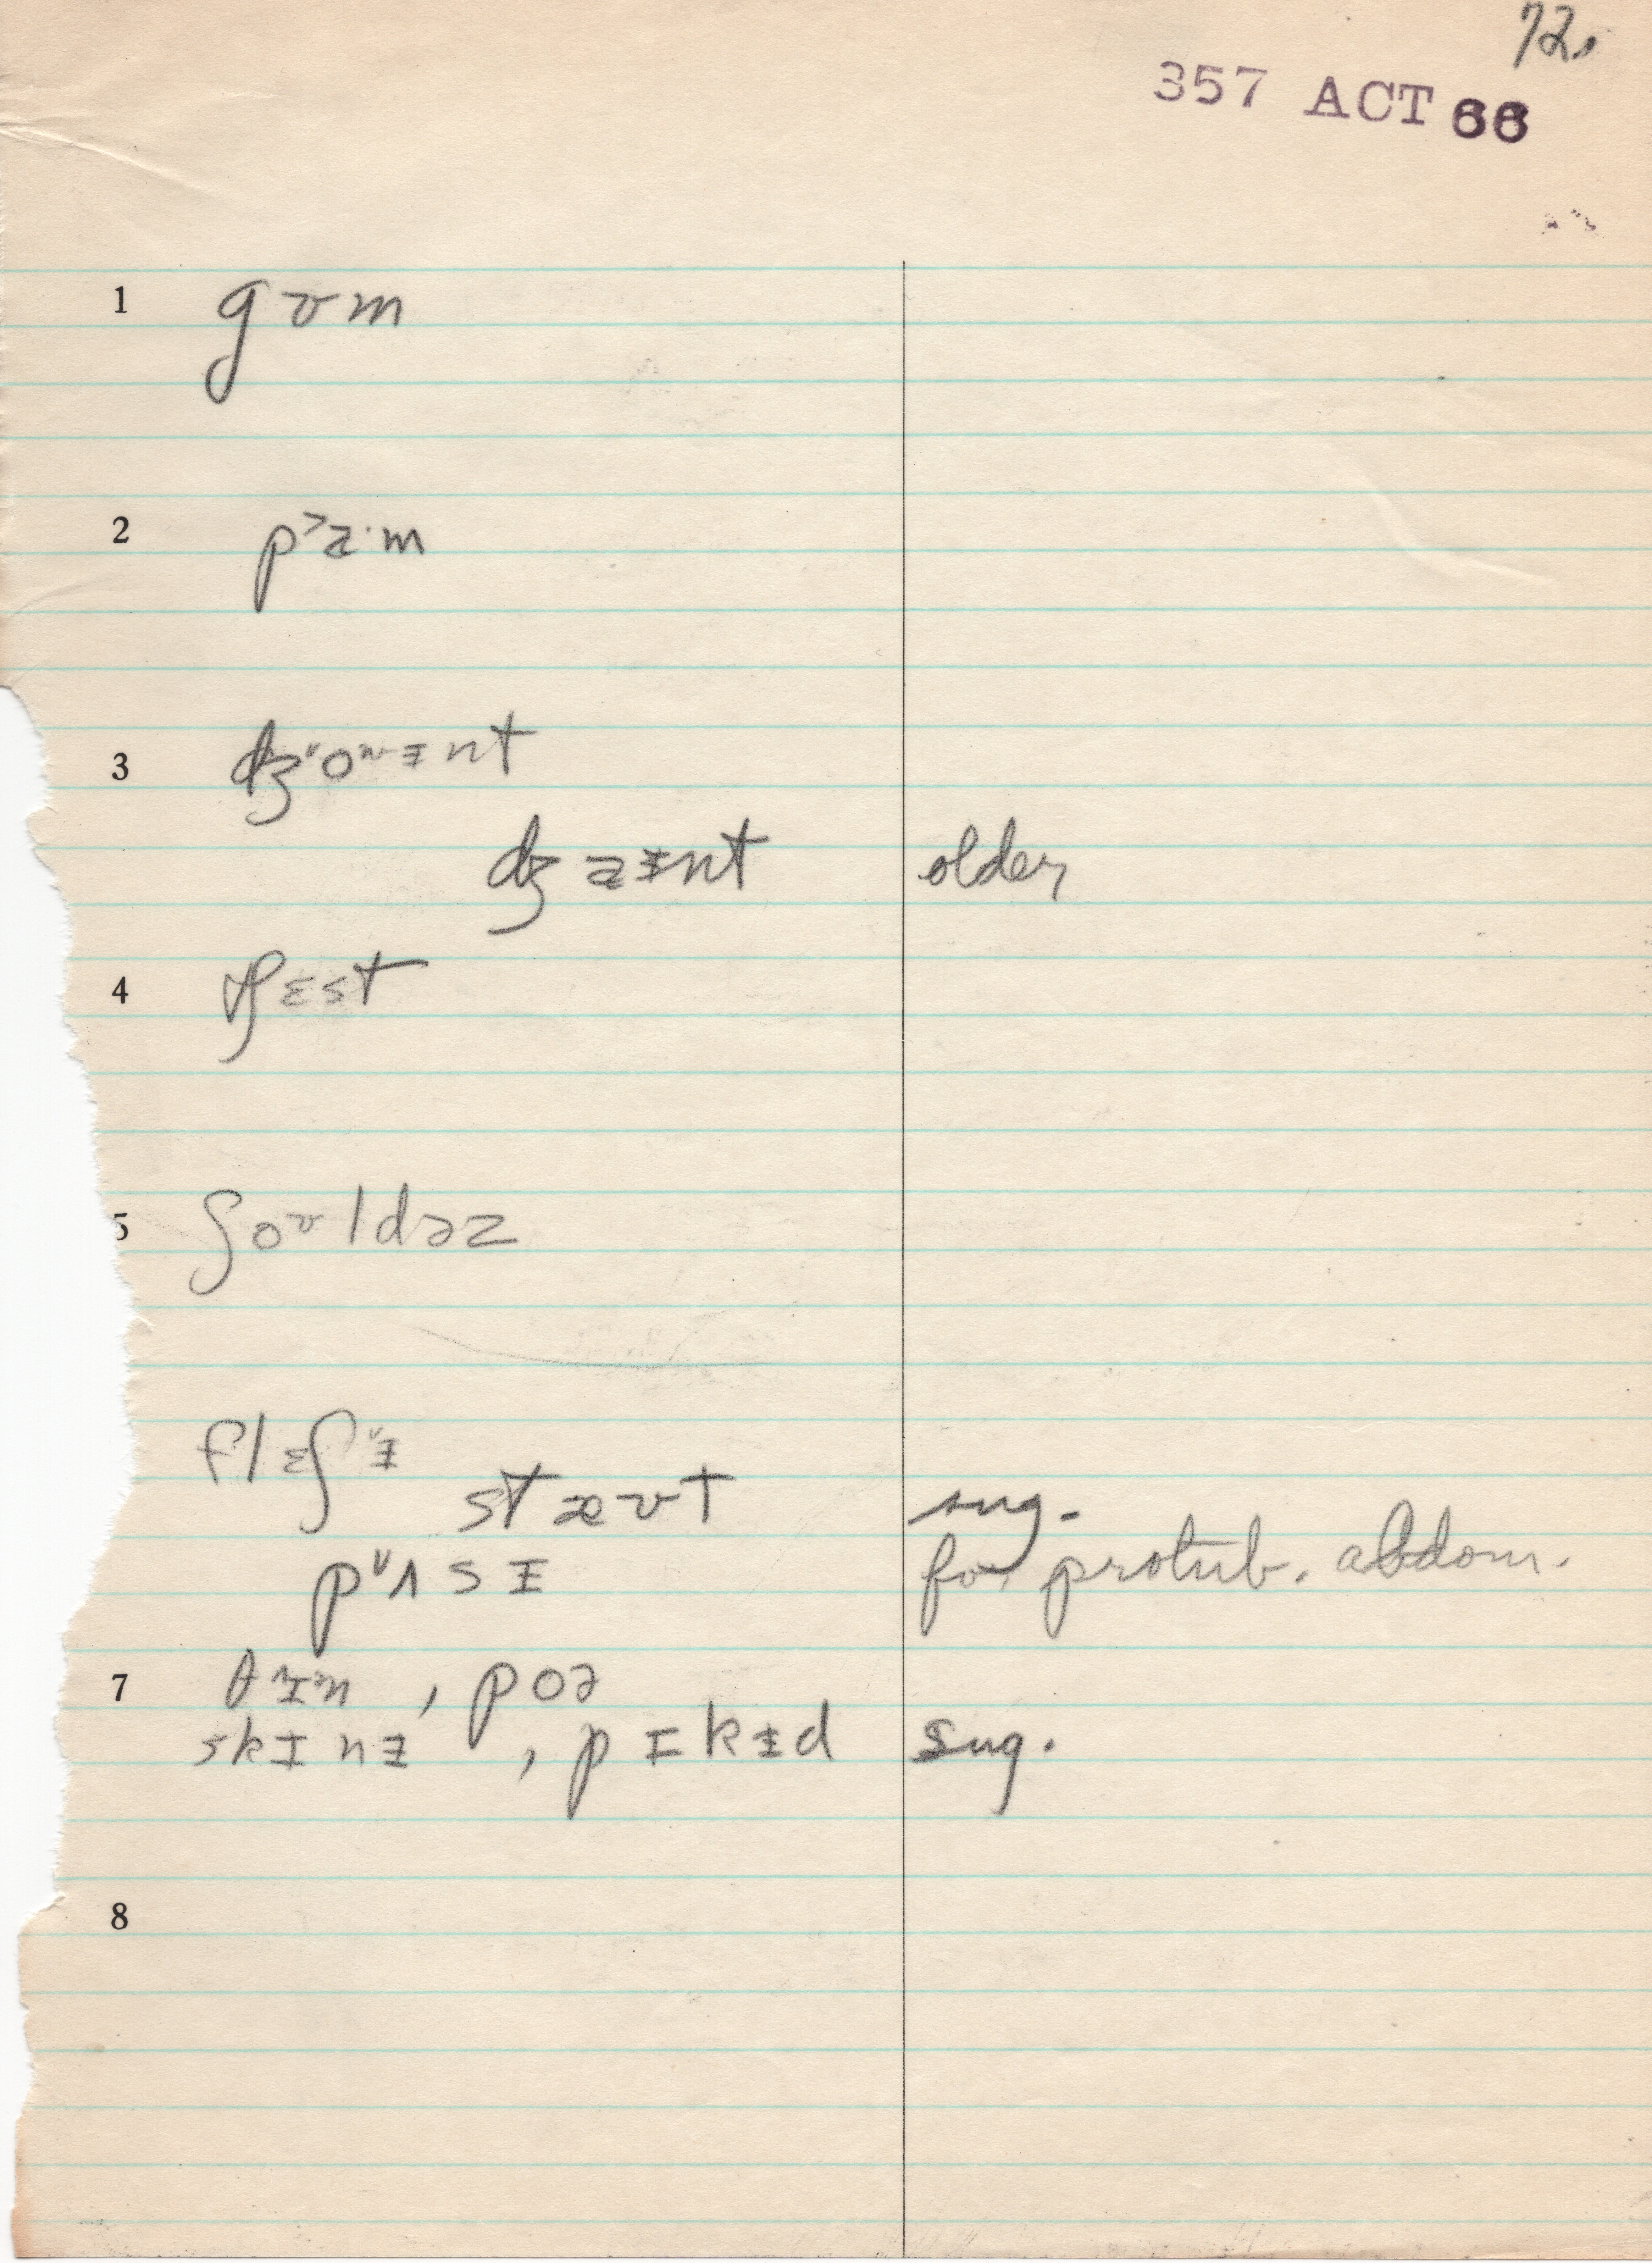 72.
357 ACT 66
1 gʊm
2 p˃a·m
3 dʒ˅oʊɨnt
dʒaɨnt older
4 tʃɛst
5 ʃoʊldəz
flɛʃ˅ɨ
stæʊt sug.
p˅ʌsɨ for protub. abdom.
7 θɪn, poə
skɪnɨ, pɪkɨd sug.
8